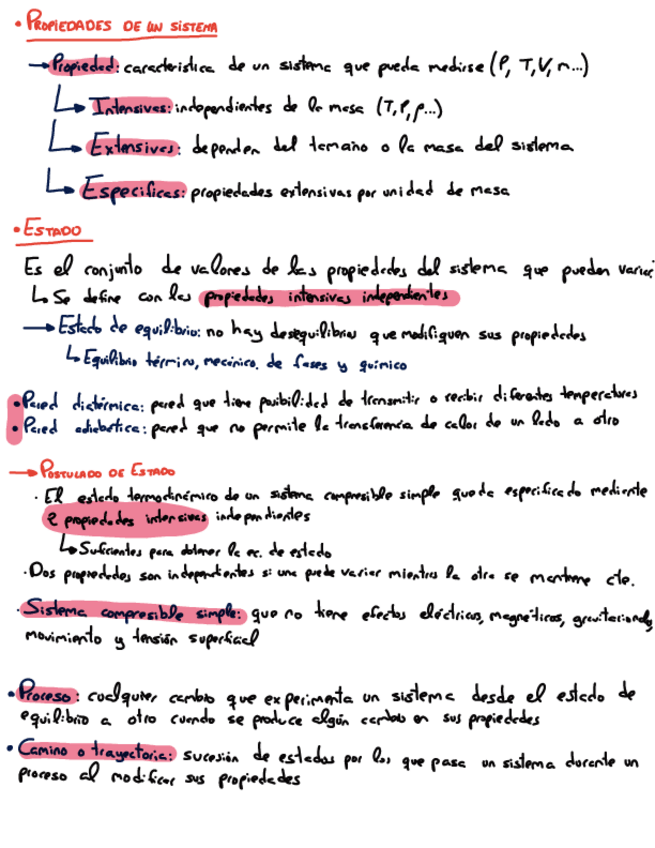 • PROPIEDADES DE UN SISTEMA
→ Propiedad: característica de un sistema que pueda medirse (P, T, V, m...)
↳ Intensivas: independientes de la masa (T, P, ρ...)
↳ Extensivas: dependen del tamaño o la masa del sistema
↳ Específicas: propiedades extensivas por unidad de masa
• ESTADO
Es el conjunto de valores de las propiedades del sistema que pueden variar
↳ Se define con las propiedades intensivas independientes
→ Estado de equilibrio: no hay desequilibrios que modifiquen sus propiedades
↳ Equilibrio térmico, mecánico, de fases y químico
• Pared diatérmica: pared que tiene posibilidad de transmitir o recibir diferentes temperaturas
• Pared adiabática: pared que no permite la transferencia de calor de un lado a otro
→ POSTULADO DE ESTADO
· El estado termodinámico de un sistema compresible simple queda especificado mediante
2 propiedades intensivas independientes
↳ Suficientes para obtener la ec. de estado
· Dos propiedades son independientes si una puede variar mientras la otra se mantiene cte.
· Sistema compresible simple: que no tiene efectos eléctricos, magnéticos, gravitacionales,
movimiento y tensión superficial
• Proceso: cualquier cambio que experimenta un sistema desde el estado de
equilibrio a otro cuando se produce algún cambio en sus propiedades
• Camino o trayectoria: sucesión de estados por los que pasa un sistema durante un
proceso al modificar sus propiedades